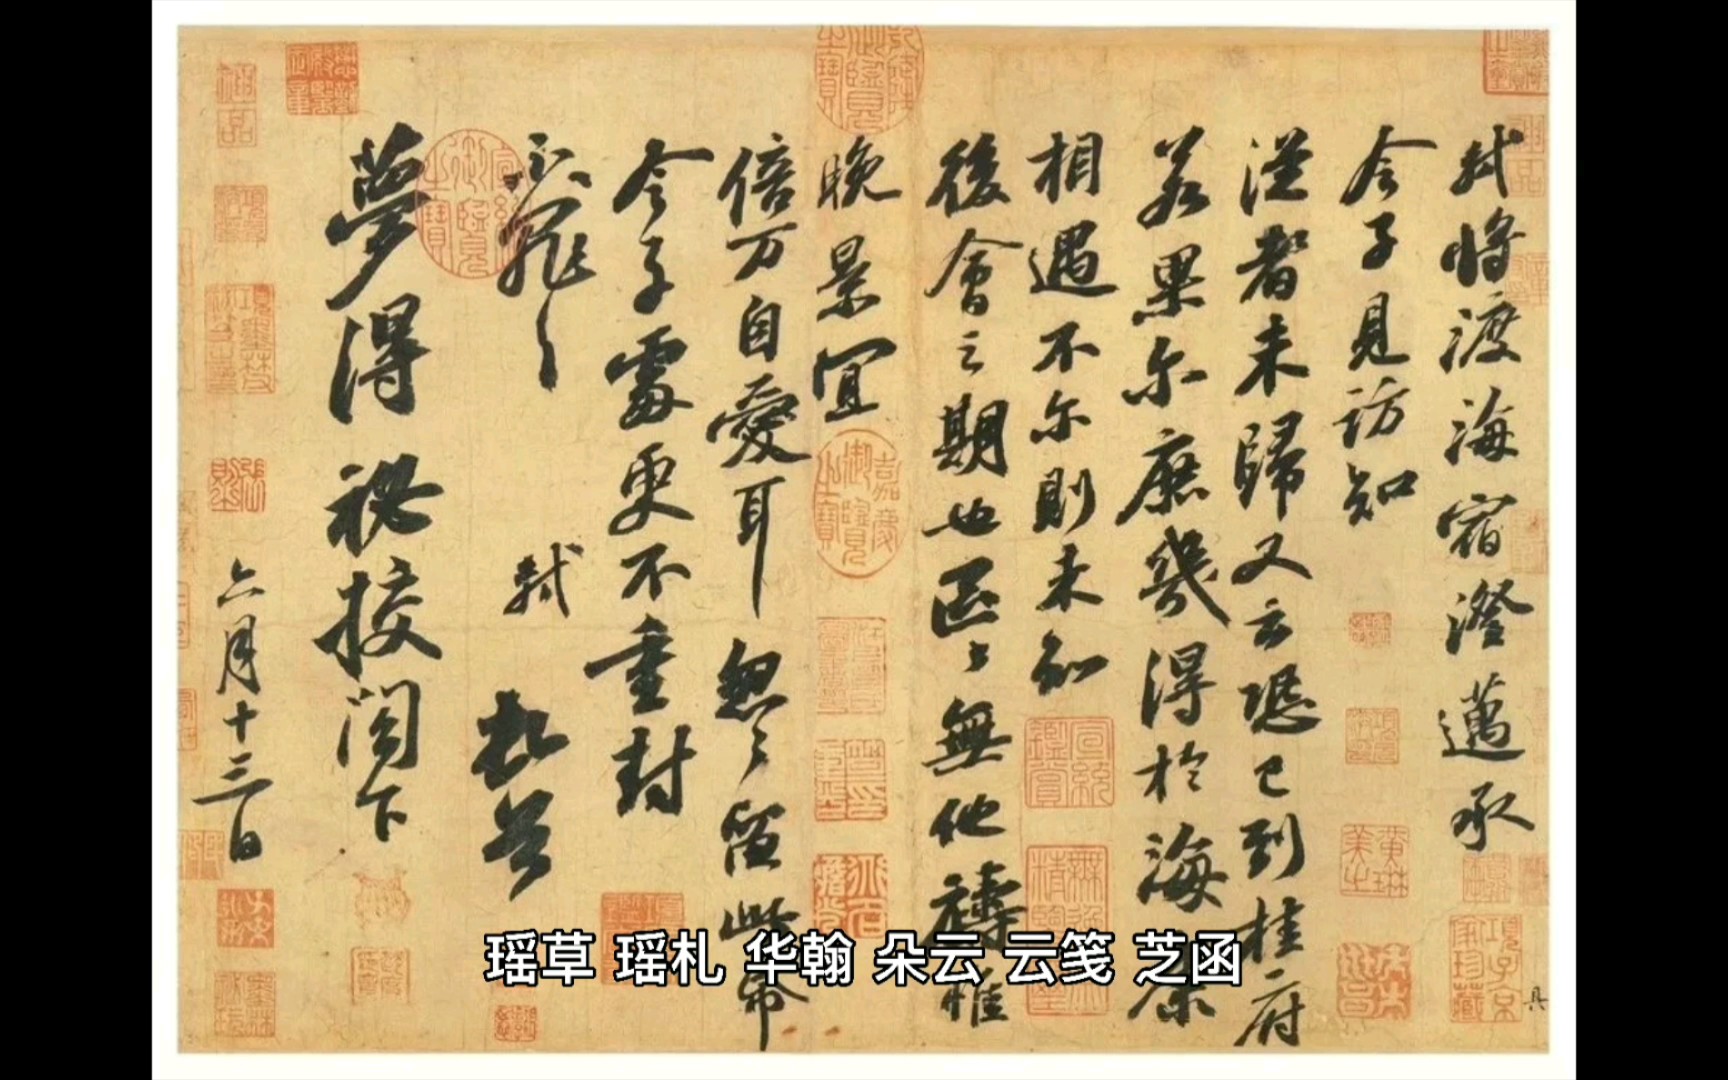 軾將渡海宿澄邁承
令子見訪知
從者未歸又云恐已到桂府
若果尔庶幾得於海康
相遇不尔則未知
後會之期也區區無他禱惟
晚景宜
倍万自愛耳忽忽留此帋
令子處更不重封
不罪不罪 軾頓首
夢得祕挍閤下
六月十三日
瑶草 瑶札 华翰 朵云 云笺 芝函